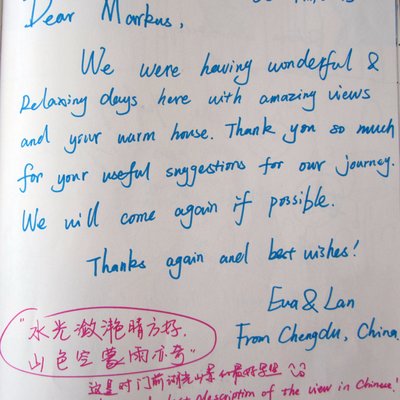 Dear Markus,
We were having wonderful &
Relaxing days here with amazing views
and your warm house. Thank you so much
for your useful suggestions for our journey.
We will come again if possible.
Thanks again and best wishes!
Eva & Lan
From Chengdu, China.
"水光潋滟晴方好,
山色空蒙雨亦奇"
这是对门前湖光山景的最好写照
best description of the view in Chinese!